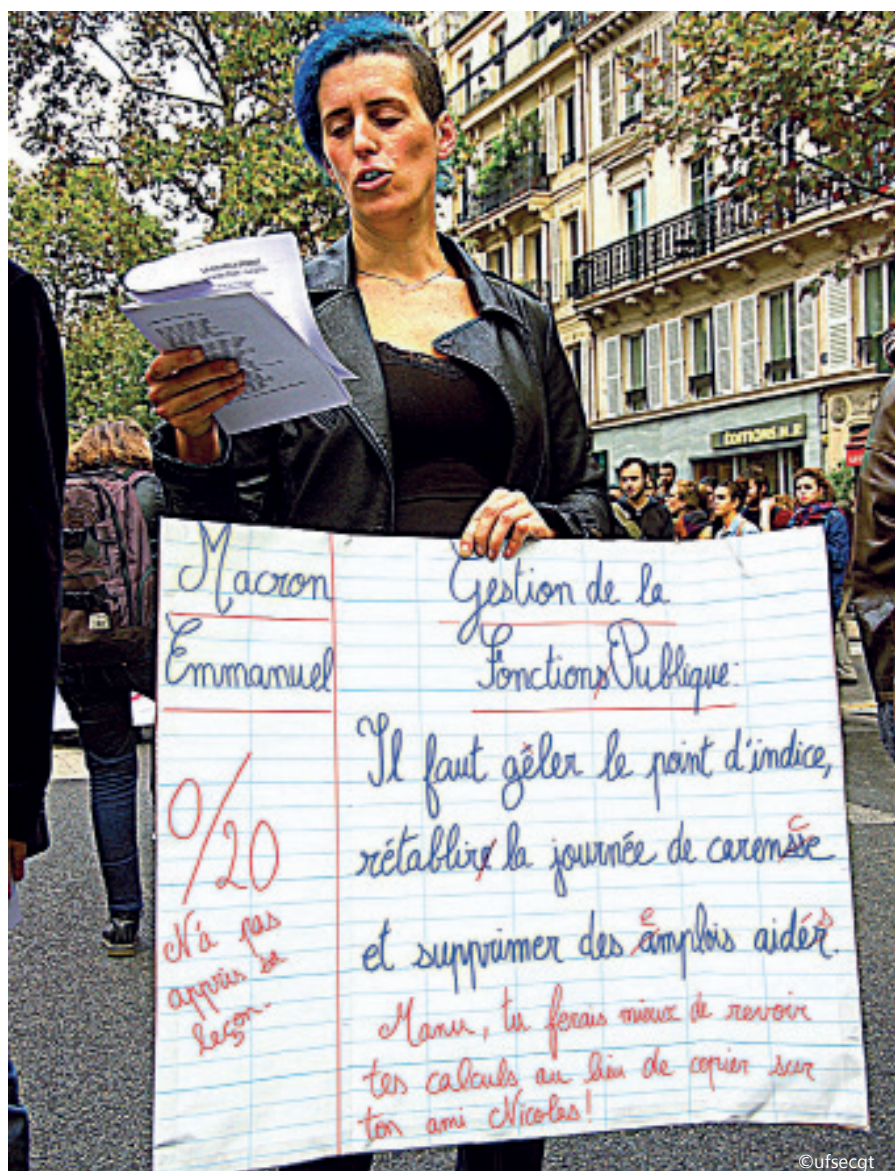 EDITIONS
Macron
Emmanuel
0/20
N'a pas
appris sa
leçon.
Gestion de la
Fonctions Publique:
Il faut gêler le point d'indice,
rétablire la journée de carensse
c
et supprimer des amplois aidér.
e s
Manu, tu ferais mieux de revoir
tes calculs au lieu de copier sur
ton ami Nicolas!
©ufsecgt